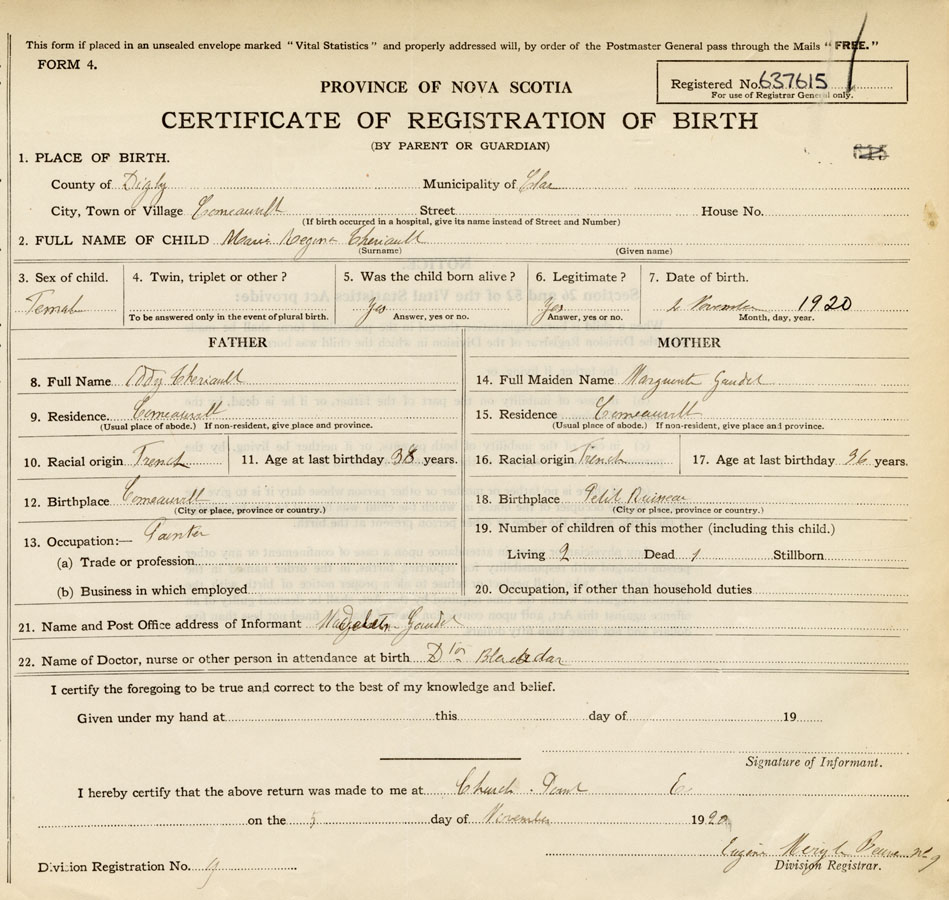 This form if placed in an unsealed envelope marked "Vital Statistics" and properly addressed will, by order of the Postmaster General pass through the Mails "FREE."
FORM 4.
Registered No. 637615
For use of Registrar General only.
PROVINCE OF NOVA SCOTIA
CERTIFICATE OF REGISTRATION OF BIRTH
(BY PARENT OR GUARDIAN)
1. PLACE OF BIRTH.
County of Digby Municipality of Clare
City, Town or Village Comeauville Street House No.
(If birth occurred in a hospital, give its name instead of Street and Number)
2. FULL NAME OF CHILD Marie Regina Theriault
(Surname) (Given name)
3. Sex of child. 4. Twin, triplet or other? 5. Was the child born alive? 6. Legitimate? 7. Date of birth.
Female Yes Yes 2 November 1920
To be answered only in the event of plural birth. Answer, yes or no. Answer, yes or no. Month, day, year.
FATHER MOTHER
8. Full Name Eddy Theriault
9. Residence. Comeauville
(Usual place of abode.) If non-resident, give place and province.
10. Racial origin French 11. Age at last birthday 38 years.
12. Birthplace Comeauville
(City or place, province or country.)
13. Occupation:— Painter
(a) Trade or profession
(b) Business in which employed
14. Full Maiden Name Marguerite Gaudet
15. Residence Comeauville
(Usual place of abode.) If non-resident, give place and province.
16. Racial origin French 17. Age at last birthday 36 years.
18. Birthplace Petit Ruisseau
(City or place, province or country.)
19. Number of children of this mother (including this child.)
Living 2 Dead 1 Stillborn
20. Occupation, if other than household duties
21. Name and Post Office address of Informant Gaudet
22. Name of Doctor, nurse or other person in attendance at birth Dtor
I certify the foregoing to be true and correct to the best of my knowledge and belief.
Given under my hand at this day of 19
Signature of Informant.
I hereby certify that the above return was made to me at Church Point
on the 5 day of November 1920
Division Registrar.
Division Registration No. 9